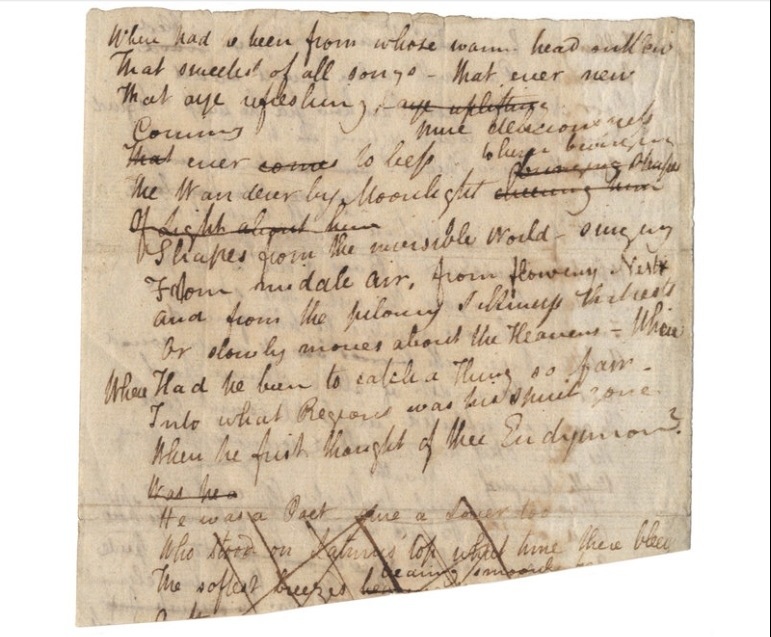 Where had he been from whose warm head outflew
That sweetest of all songs – that ever new
That aye refreshing, – aye uplifting
pure deliciousness
Coming
That ever comes to bless when bringing
bringing shapes
The Wanderer by Moonlight cheering him
Of Light about him
Shapes from the invisible World – singing
From middle air, from flowery Nests
and from the pillowy silkiness that rests
Or slowly moves about the Heavens – Where
Where Had he been to catch a Thing so fair –
Into what Regions was his spirit gone
When he first thought of thee Endymion?
Was he
He was a Poet sure a Lover too
Who stood on Latmus top what time there blew
The softest breezes